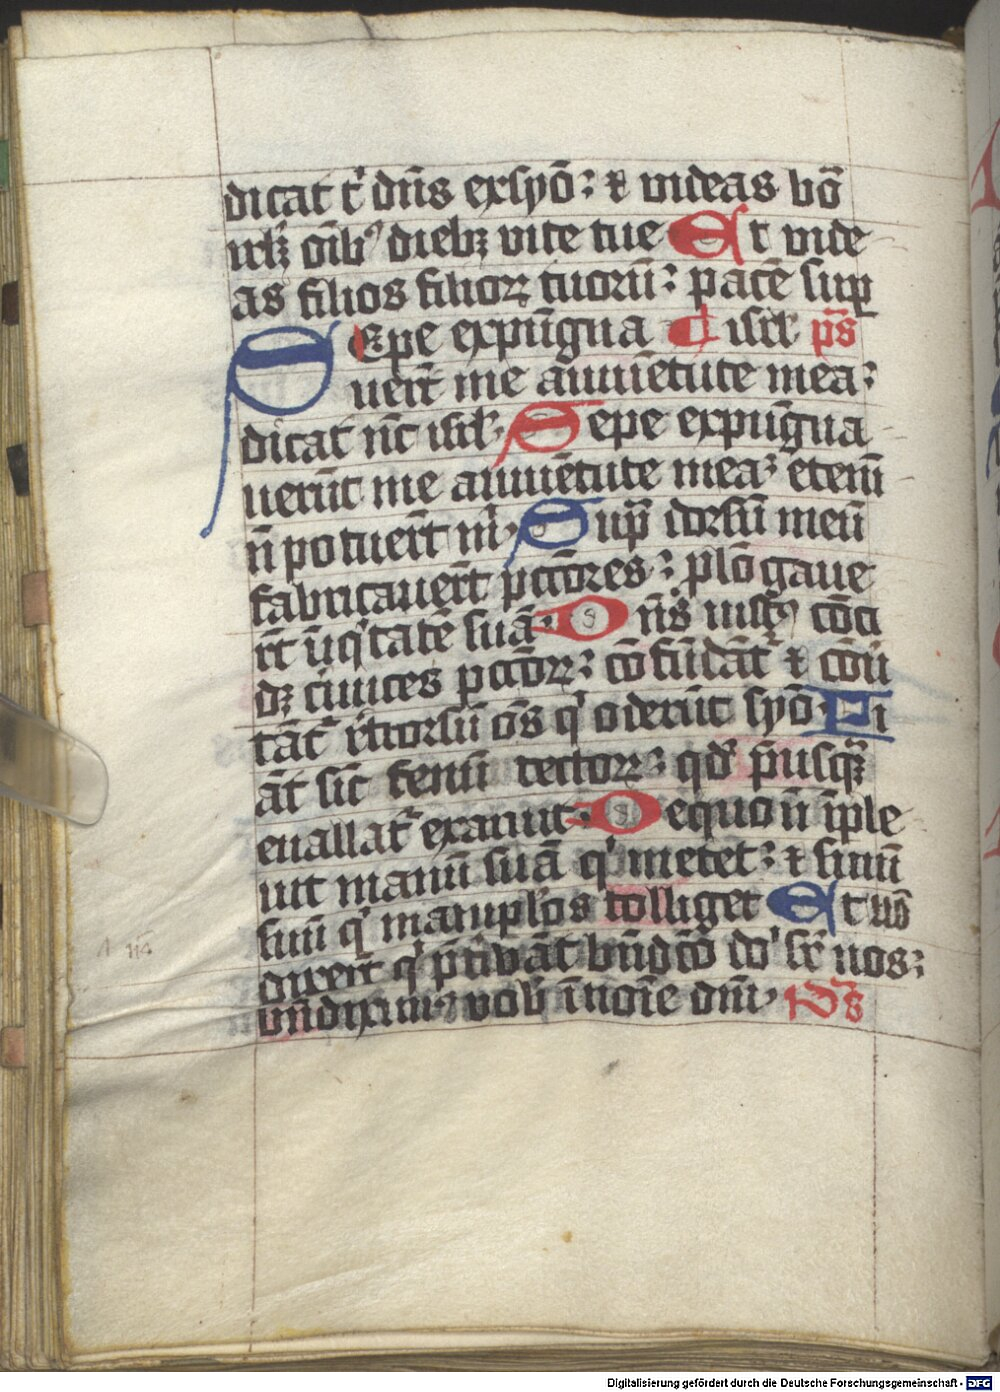 dicat t͛ dn̄s exsyō: ⁊ uideas bō
irlꝫ oībꝰ diebꝫ uite tue Et uide
as filios filioꝝ tuoꝝū: pacē suꝑ
Sepe expūgna ¶ isrl̄ p̄s
uerūt me aiuuētute mea:
dicat nc̄ isrl̄. Sepe expūgna
uerūt me aiuuētute mea: eteni
n̄ potuerūt m͛. Supͣ dorsū meū
fabricauerūt pctōres: plōgaue
rūt iīqͥtatē suā. Dn̄s iustꝰ cōci
dꝫ ceruices pctōꝝ: cōfūdāt͛ ⁊ cōuͥ
tāt͛ ret͛rorsū oēs qͥ oderūt syō. Fi
āt sic̄ fenū tectoꝝ: qd̄ p̄usqͣꝫ
euallat͛ exaruit. De quo n̄ īple
uit manū suā qͥ metet: ⁊ sinū
suū qͥ manipl̓os colliget Et nō
dixerūt qͥ p̄t͛ibāt bn̄dcō dn̄i sr̄ uos:
bn̄diximꝰ uob̄ ī noīe dn̄i. Ps̄
Digitalisierung gefördert durch die Deutsche Forschungsgemeinschaft - DFG